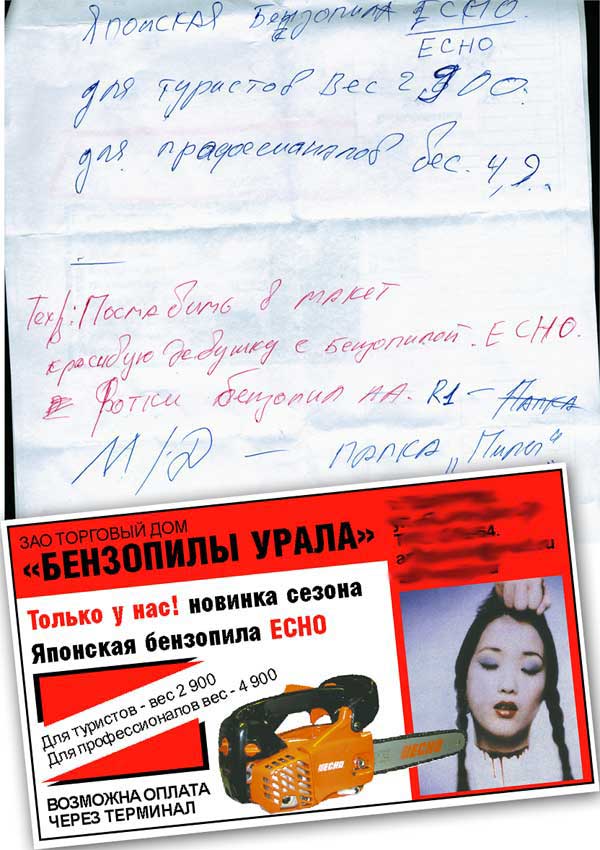 Японская Бензопила ECHO
ECHO
для туристов Вес 2,900.
для прафесианалов вес. 4,9..
Поставить в макет
красивую девушку с бензопилой. ECHO.
Фотки бензопил на. R1 – Папка
М/Д – папка „Пилы"
ЗАО ТОРГОВЫЙ ДОМ
«БЕНЗОПИЛЫ УРАЛА»
Только у нас! новинка сезона
Японская бензопила ECHO
Для туристов - вес 2 900
Для профессионалов вес - 4 900
ВОЗМОЖНА ОПЛАТА
ЧЕРЕЗ ТЕРМИНАЛ
ECHO
ECHO